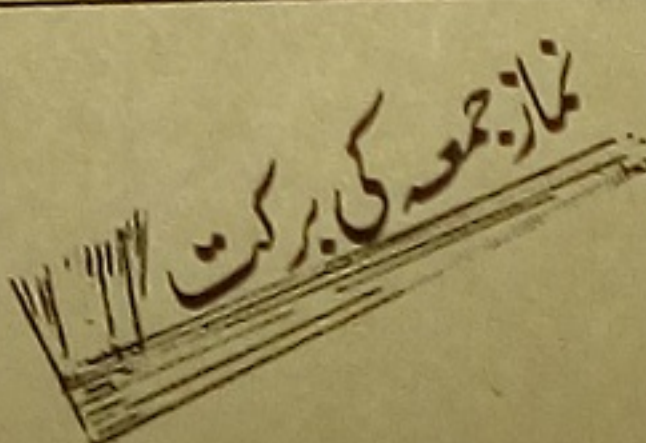 نماز جمعہ کی برکت